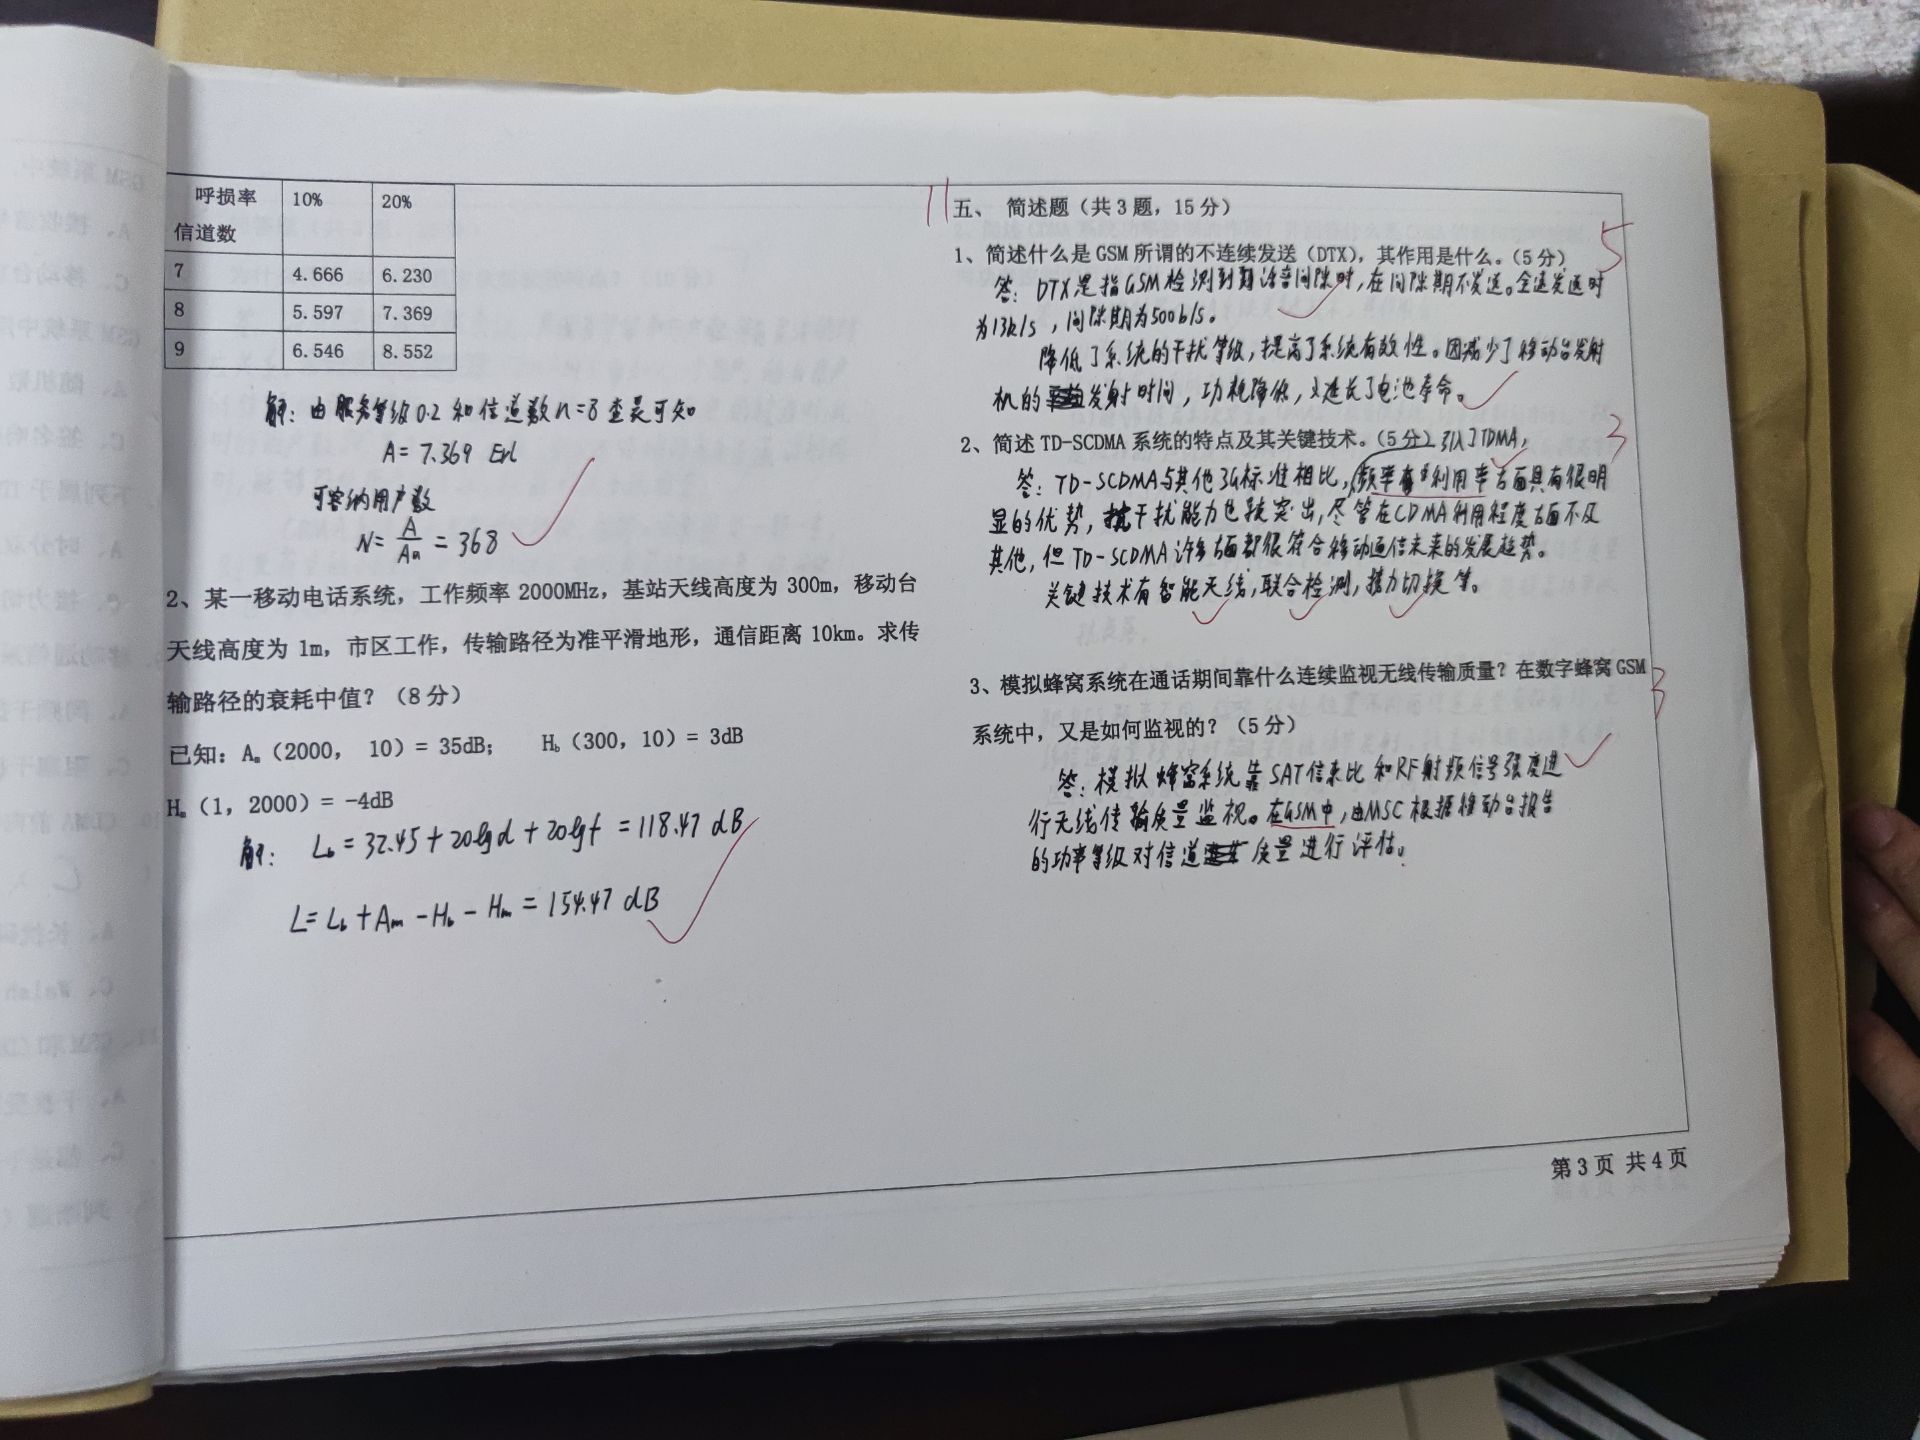 呼损率 10% 20%
信道数
7 4.666 6.230
8 5.597 7.369
9 6.546 8.552
解：由服务等级0.2和信道数n=8查表可知
A=7.369 Erl
可容纳用户数
N=A/Aa=368
2、某一移动电话系统，工作频率2000MHz，基站天线高度为300m，移动台
天线高度为1m，市区工作，传输路径为准平滑地形，通信距离10km。求传
输路径的衰耗中值？（8分）
已知：Am（2000， 10）= 35dB； Hb（300，10）= 3dB
Hm（1，2000）= -4dB
解： Lb=32.45+20lgd+20lgf=118.47 dB
L=Lb+Am-Hb-Hm=154.47 dB
11
五、 简述题（共3题，15分）
5
1、简述什么是GSM所谓的不连续发送（DTX），其作用是什么。（5分）
答：DTX是指GSM检测到话音间隙时，在间隙期不发送。全速发送时
为13k/s，间隙期为500b/s。
降低了系统的干扰等级，提高了系统有效性。因减少了移动台发射
机的发射时间，功耗降低，又延长了电池寿命。
2、简述TD-SCDMA系统的特点及其关键技术。（5分）引入了TDMA，
3
答：TD-SCDMA与其他3G标准相比，频率利用率方面具有很明
显的优势，抗干扰能力也较突出，尽管在CDMA利用程度方面不及
其他，但TD-SCDMA许多方面都很符合移动通信未来的发展趋势。
关键技术有智能天线，联合检测，接力切换等。
3、模拟蜂窝系统在通话期间靠什么连续监视无线传输质量？在数字蜂窝GSM
3
系统中，又是如何监视的？（5分）
答：模拟蜂窝系统靠SAT信来比和RF射频信号强度进
行无线传输质量监视。在GSM中，由MSC根据移动台报告
的功率等级对信道质量进行评估。
第3页 共4页